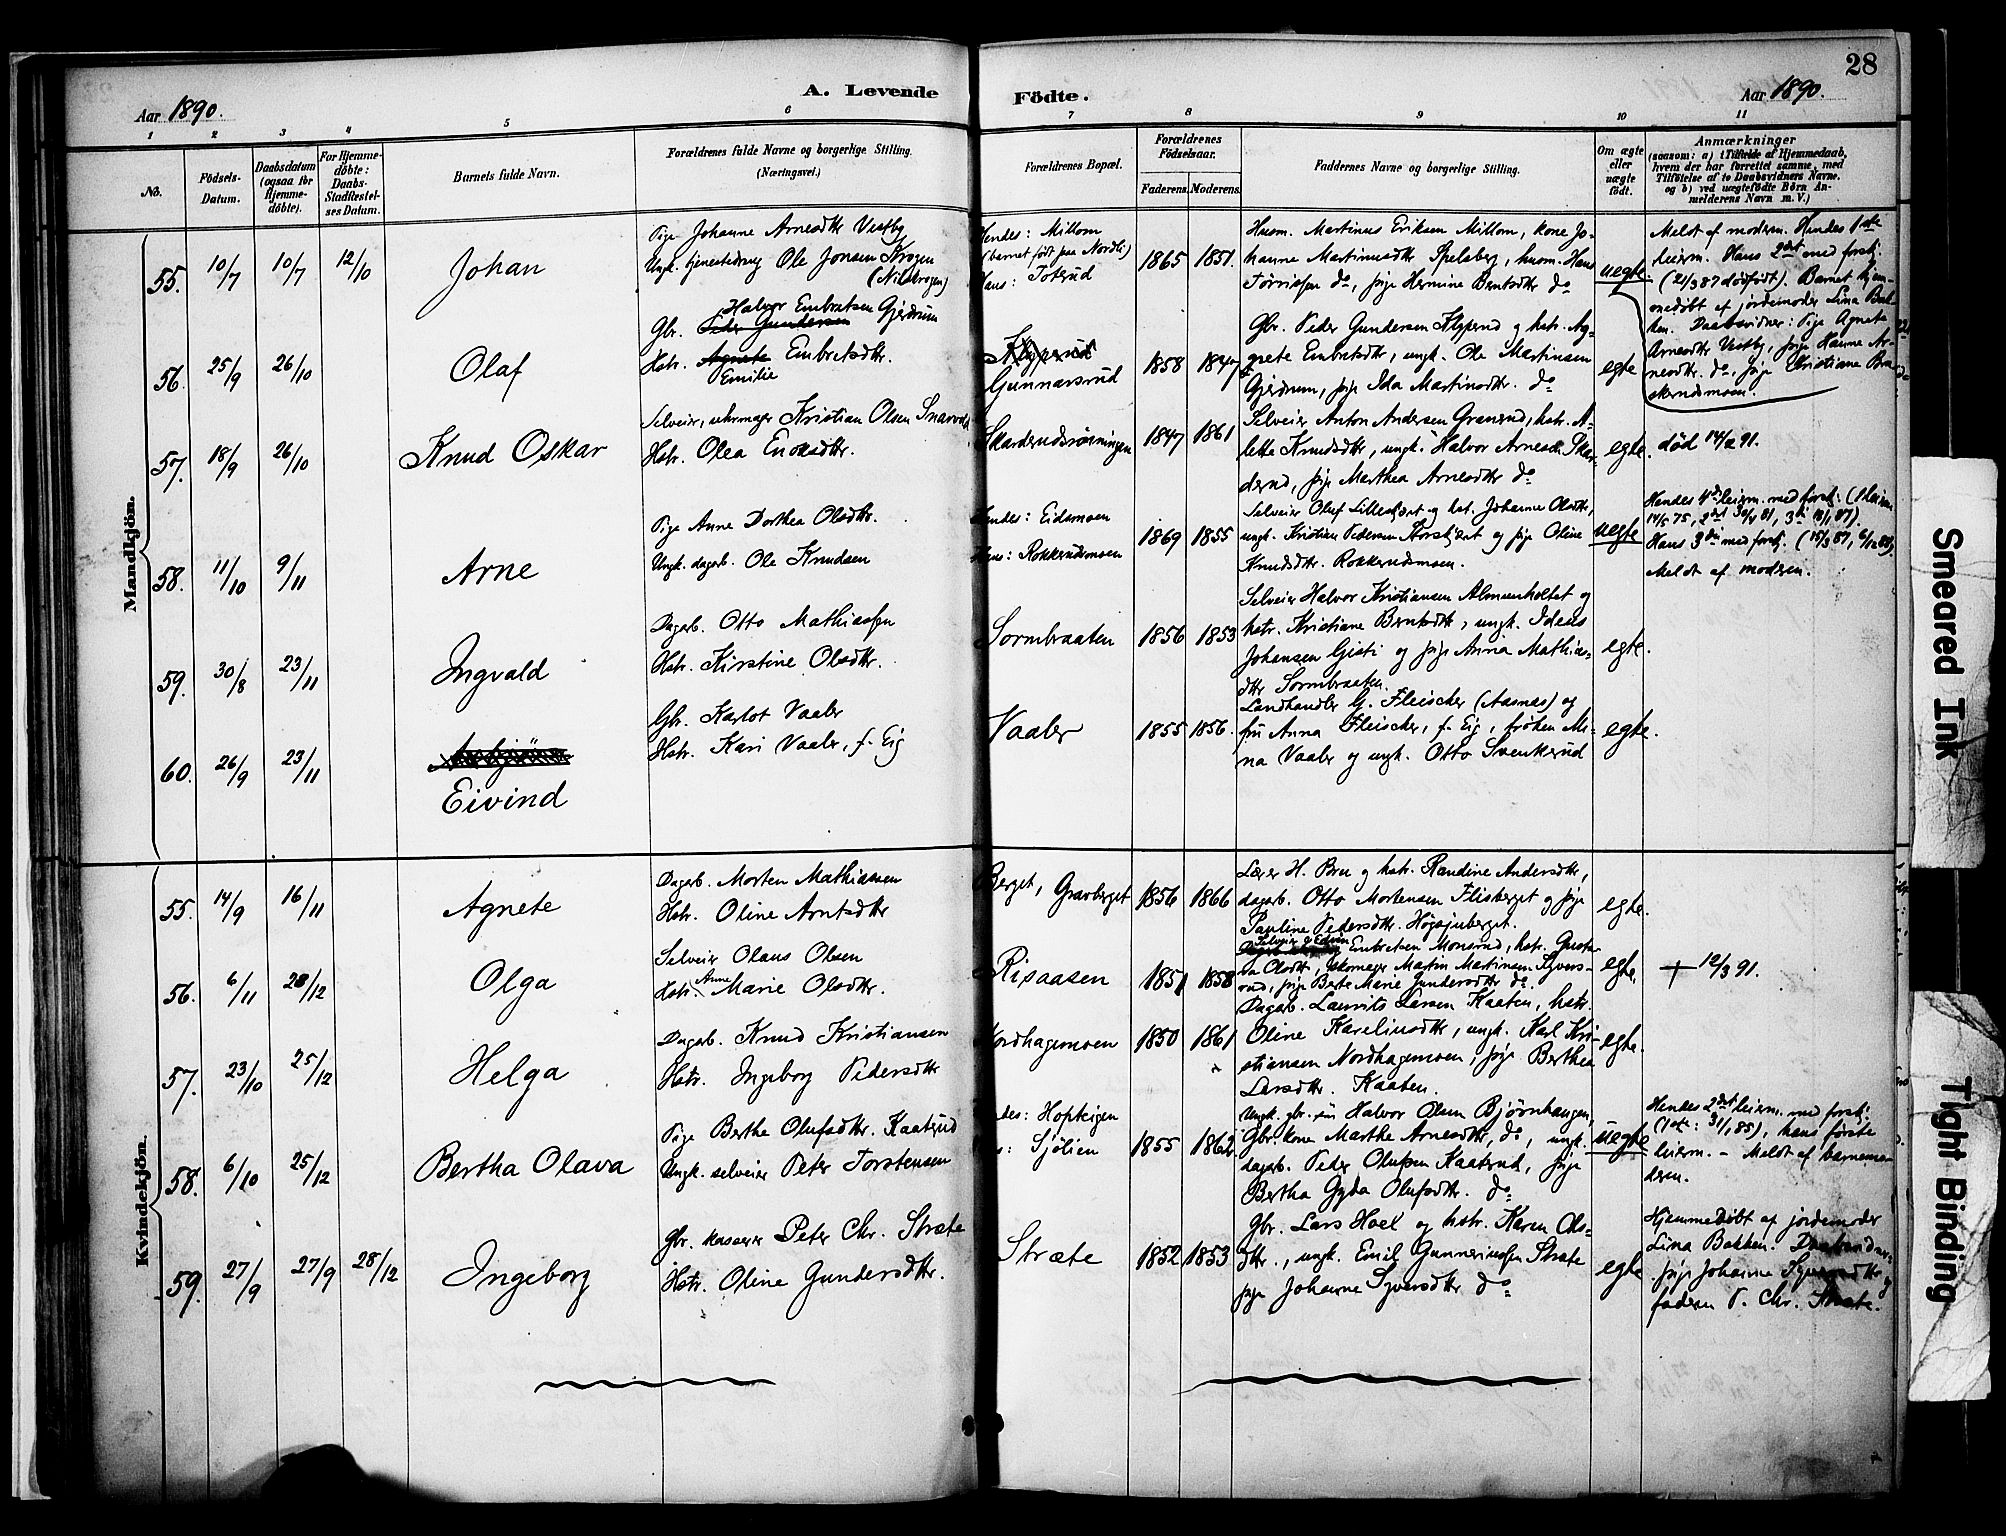 28
Aar 1890.
A. Levende
Födte.
Aar 1890.
1 2 3 4 5 6 7 8 9 10 11
No.
Födsels-
Datum.
Daabsdatum
(ogsaa for
Hjemme-
döbte).
For Hjemme-
döbte:
Daabs-
Stadfæstel-
ses Datum.
Barnets fulde Navn.
Forældrenes fulde Navne og borgerlige Stilling.
(Næringsvei.)
Forældrenes Bopæl.
Forældrenes
Födselsaar.
Faderens.
Moderens.
Faddernes Navne og borgerlige Stilling.
Om ægte
eller
uægte
födt.
Anmærkninger
(saasom: a) i Tilfælde af Hjemmedaab,
hvem der har forrettet samme, med
Tilföielse af to Daabsvidners Navne,
og b) ved uægtefödte Börn An-
melderens Navn m. V.)
Mandkjön.
55. 10/7 10/7 12/10 Johan
Pige Johanne Arnesdtr Vestby
Ungk. tjenestedreng Ole Jonsen Krogen
Hendes: Millom
(barnet født paa Nordli)
Hans: Toterud
1865 1851.
Husm. Martinus Eriksen Millom, kone Jo-
hanne Martinusdtr Spelsberg, husm. Hans
Tørrissen do, pige Hermine Berntsdtr do
uegte.
Meldt af moderen. Hendes 1ste
leierm. Hans 2det med forskj.
(21/3 87 dødfødt). Barnet hjem-
medøbt af jordemoder Lina Bak-
ken. Daabsvidner: Pige Agnete
Arnesdtr Vestby, pige Hanne Ar-
nesdtr. do, pige Christiane Bra-
skerudmoen.
56. 25/9 26/10 Olaf
Halvor Embretsen Gjerdrum
Gbr. Peder Gundersen
Hstr. Agnete Embretsdtr.
Emilie
Klyperud
Gunnarsrud
1858 1847
Gbr. Peder Gundersen Klyperud og hstr. Ag-
nete Embretsdtr, ungk. Ole Martinsen
Gjerdrum, pige Ida Martinsdtr. do
egte
57. 18/9 26/10 Knud Oskar
Selveier, uhrmager Kristian Olsen Snarvold
Hstr. Olea Enoksdtr.
Skarderudsrøningen
1847 1861
Selveier Anton Andersen Granerud, hstr. A-
lette Knudsdtr, ungk. Halvor Arnesen Skar-
derud, pige Marthea Arnesdtr do
egte.
død 14/2 91.
58. 11/10 9/11 Arne
Pige Anne Dorthea Olsdtr.
Ungk. dagarb. Ole Knudsen
Hendes: Eidsmoen
Hans: Rokkerudsmoen
1869 1855
Selveier Oluf Lillekjært og hst. Johanne Olsdtr,
ungk. Kristian Pedersen Storkjært og pige Oline
Knudsdtr. Rokkerudsmoen.
uegte
Hendes 4de leierm. med forskj. (1 leierm
14/6 75, 2det 30/4 81, 3die 18/1 87).
Hans 3die med forskj. (15/3 87, 6/12 88).
Meldt af moderen.
59. 30/8 23/11 Ingvald
Dagarb. Otto Mathiassen
Hstr. Kirstine Olsdtr.
Sormbraaten
1856 1853
Selveier Halvor Kristiansen Almenholtet og
hstr. Kristiane Berntsdtr, ungk. Ideus
Johansen Gisti og pige Anna Mathias-
dtr Sormbraaten.
egte.
60. 26/9 23/11
Eivind
Gbr. Karlot Vaaler
Hstr. Kari Vaaler, f. Eig
Vaaler
1855 1856.
Landhandler G. Fleischer (Aasnæs) og
fru Anna Fleischer, f. Eig, frøken Mi-
na Vaaler og ungk. Otto Svenkerud
egte.
Kvindekjön.
55. 14/9 16/11 Agnete
Dagarb. Morten Mathiassen
Hstr. Oline Arntsdtr
Berget, Gravberget
1856 1866
Lærer H. Bru og hstr. Randine Andersdtr,
dagarb. Otto Mortensen Flisberget og pige
Pauline Pedersdtr. Høgsjøberget.
egte.
56. 6/11 28/12 Olga
Selveier Olaus Olsen
Hstr. Anne Marie Olsdtr.
Risaasen
1851 1858
Selveier Edvin
Embretsen Monsrud, hstr. Gusta-
va Olsdtr, skomager Martin Martinsen Syvers-
rud, pige Berte Marie Gundersdtr do.
egte.
+ 12/3 91.
57. 23/10 25/12 Helga
Dagarb. Knud Kristiansen
Hstr. Ingeborg Pedersdtr
Nordhagemoen
1850 1861
Dagarb. Laurits Larsen Kaaten, hstr.
Oline Karelinsdtr, ungk. Karl Kri-
stiansen Nordhagemoen, pige Berthea
Larsdtr. Kaaten.
egte.
58. 6/10 25/12 Bertha Olava
Pige Berthe Olufsdtr. Kaaterud
Ungk. selveier Peter Torstensen
Hopkigen
Sjölien
1855 1862
Ungk. gbr. søn Halvor Olsen Bjørnhaugen,
Gbr. kone Marthe Arnesdtr, do, ungk.
dagarb. Peder Olufsen Kaaterud, pige
Bertha Gyda Olufsdtr. do
uegte
Hendes 2det leierm. med forskj.
(1ste: 31/1 85), hans første
leierm. – Meldt af barnemo-
deren.
59. 27/9 27/9 28/12 Ingeborg
Gbr. kasserer Peter Chr. Stræte
Hstr. Oline Gundersdtr.
Stræte
1852 1853
Gbr. Lars Hoel og hstr. Karen Ols-
dtr., ungk. Emil Gunneriussen Stræte
pige Johanne Syversdtr do
egte
Hjemmedøbt af jordemoder
Lina Bakken. Daabsvidner:
pige Johanne Syversdtr og
faderen P. Chr. Stræte.
Smeared Ink
Tight Binding